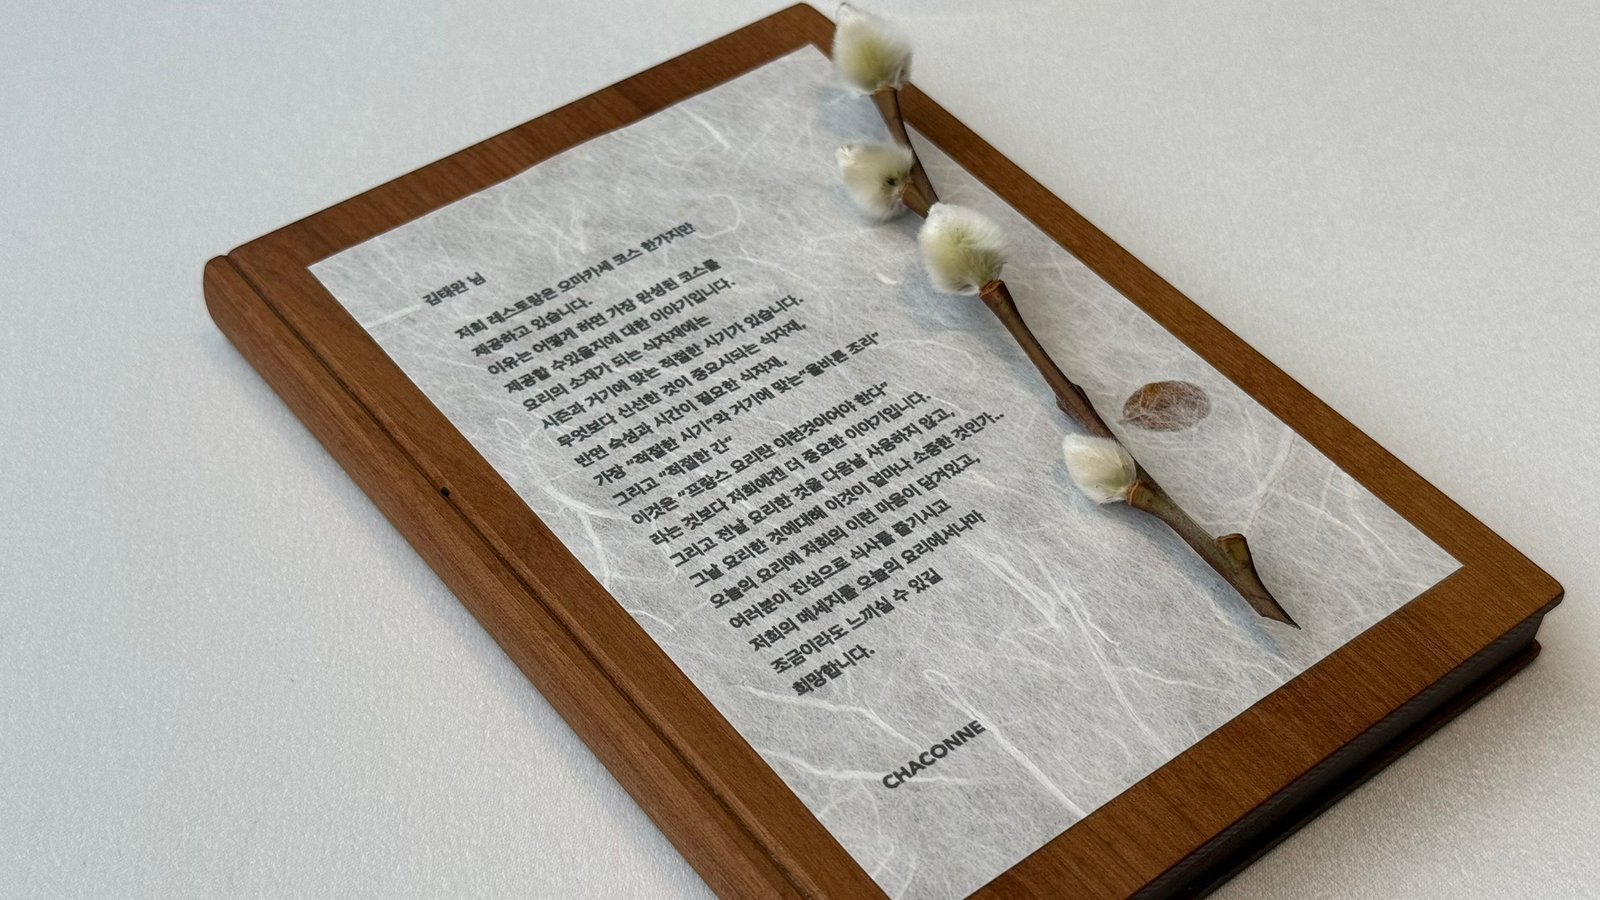 김태완 님
저희 레스토랑은 오마카세 코스 한가지만
제공하고 있습니다.
이유는 어떻게 하면 가장 완성된 코스를
제공할 수있을지에 대한 이야기입니다.
요리의 소재가 되는 식자재에는
시즌과 거기에 맞는 적절한 시기가 있습니다.
무엇보다 신선한 것이 중요시되는 식자재,
반면 숙성과 시간이 필요한 식자재,
가장 "적절한 시기"와 거기에 맞는"올바른 조리"
그리고 "적절한 간"
이것은 "프랑스 요리란 이런것이어야 한다"
라는 것보다 저희에겐 더 중요한 이야기입니다.
그리고 전날 요리한 것을 다음날 사용하지 않고,
그날 요리한 것에대해 이것이 얼마나 소중한 것인가..
오늘의 요리에 저희의 이런 마음이 담겨있고,
여러분이 진심으로 식사를 즐기시고
저희의 메세지를 오늘의 요리에서나마
조금이라도 느끼실 수 있길
희망합니다.
CHACONNE